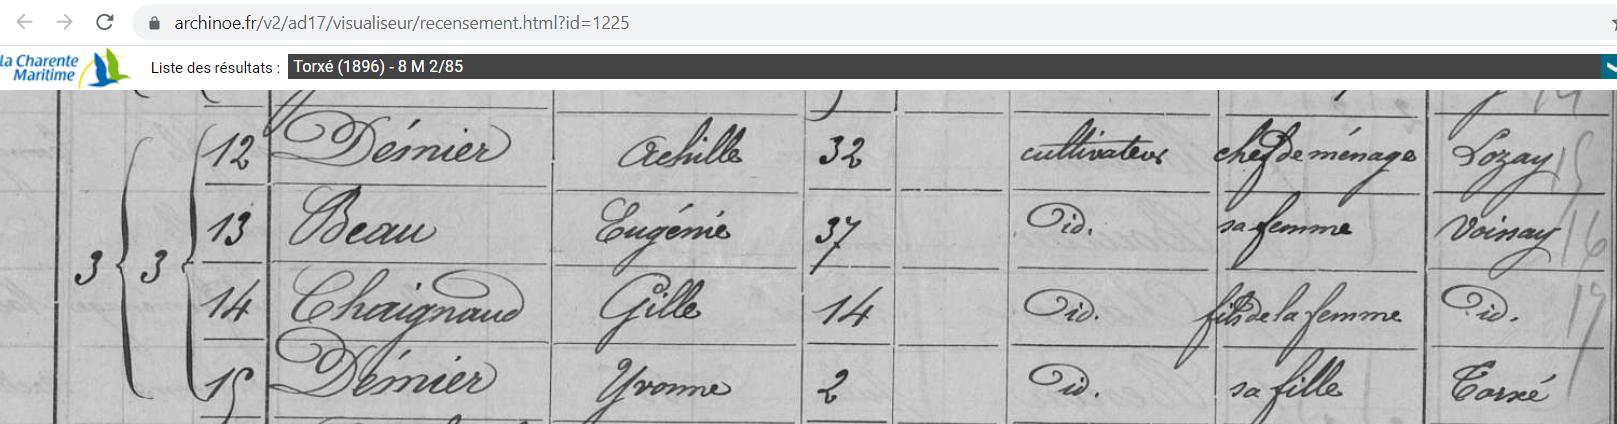 archinoe.fr/v2/ad17/visualiseur/recensement.html?id=1225
la Charente
Maritime
Liste des résultats : Torxé (1896) - 8 M 2/85
12 Démier Achille 32 cultivateur chef de ménage Lozay 15
13 Beau Eugénie 37 id. sa femme Voissay 16
3 3
14 Chaignaud Gille 14 id. fils de la femme id. 17
15 Démier Yvonne 2 id. sa fille Torxé